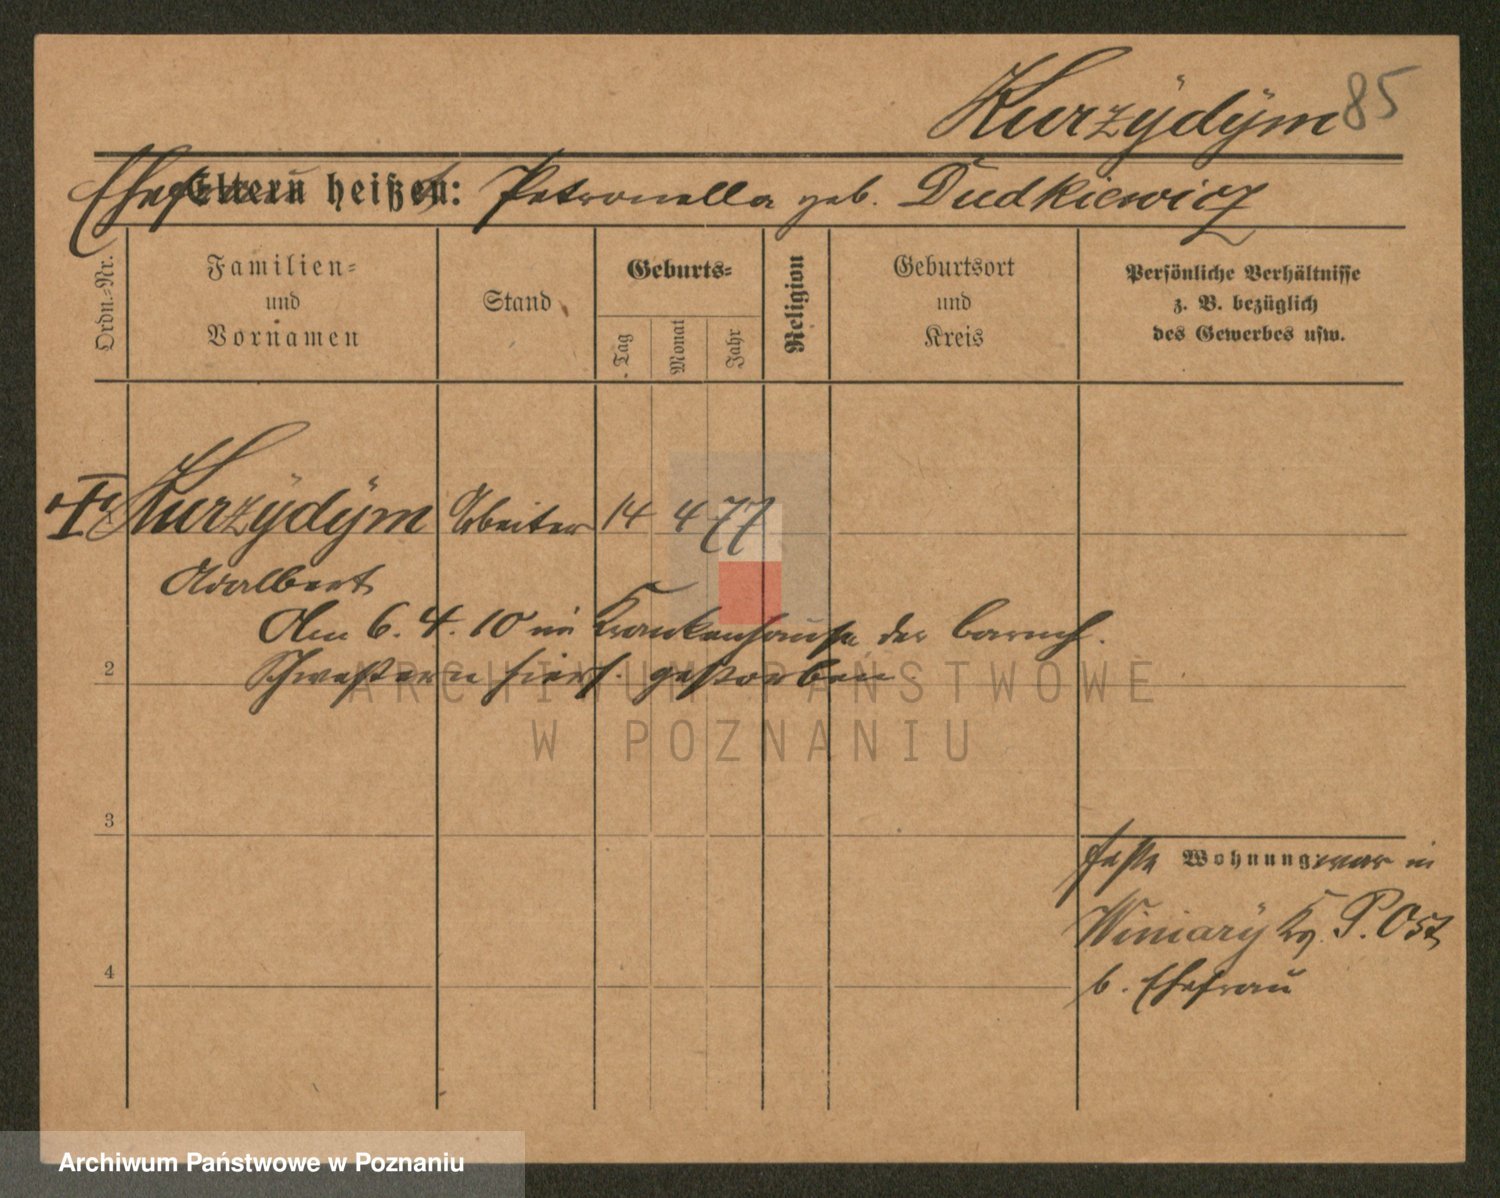 Kurzÿdÿm 85
Eltern heißen:
Ehefrau h. Petronella geb. Dudkiewicz
Ordn.-Nr.
Familien-
und
Vornamen
Stand
Geburts-
Tag
Monat
Jahr
Religion
Geburtsort
und
Kreis
Persönliche Verhältnisse
z. B. bezüglich
des Gewerbes usw.
Kurzÿdÿm Arbeiter 14 4 77
Adalbert
Am 6. 4. 10 im Krankenhause der barmh.
2
Schwestern hiers. gestorben
3
feste Wohnung war in
Winiarÿ Kr. P. Ost
4
b. Ehefrau
ARCHIWUM PAŃSTWOWE
W POZNANIU
Archiwum Państwowe w Poznaniu